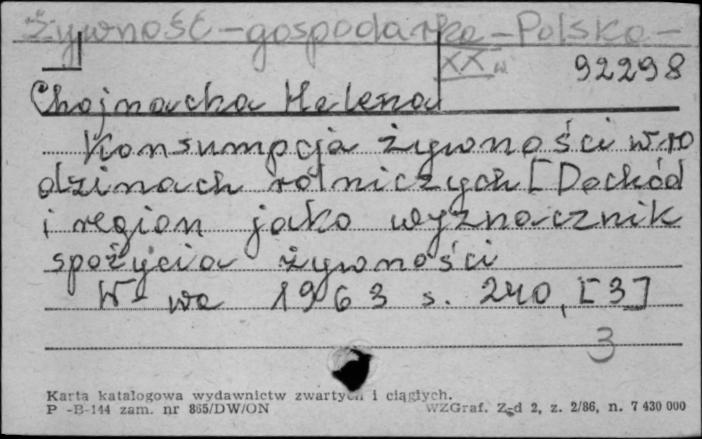 Żywność-gospodarka-Polska-
XX w
92298
Chojnacka Helena
Konsumpcja żywności w ro
dzinach rolniczych [Dochód
i region jako wyznacznik
spożycia żywności
W-wa 1963 s. 240, [3]
3
Karta katalogowa wydawnictw zwartych i ciągłych.
P -B-144 zam. nr 865/DW/ON WZGraf. Z-d 2, z. 2/86, n. 7 430 000